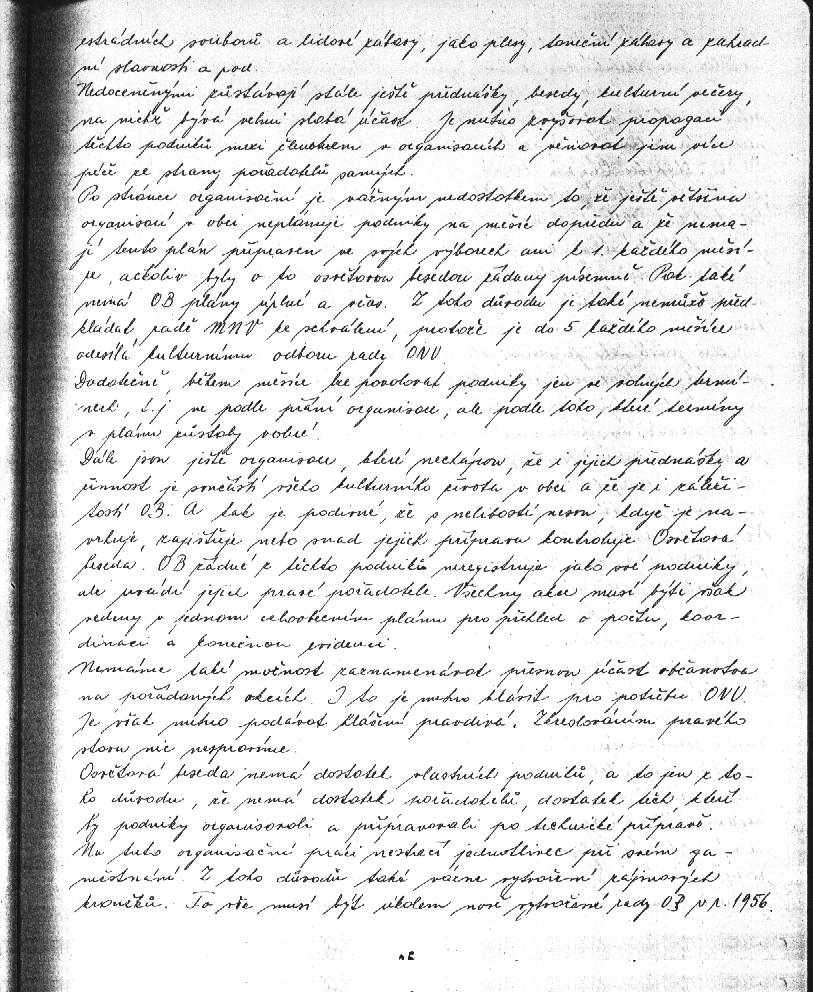 estrádních souborů a lidové zábavy, jako plesy, taneční zábavy a zahrad-
ní slavnosti a pod.
Nedoceněnými zůstávají stále ještě přednášky, besedy, kulturní večery,
na nichž bývá velmi slabá účast. Je nutno zvyšovat propagaci
těchto podniků mezi členstvem v organisacích a věnovat jim více
péče ze strany pořadatelů samých.
Po stránce organisační je vážným nedostatkem to, že ještě většina
organisací v obci neplánuje podniky na měsíc dopředu a že nema-
jí tento plán připraven ve svých výborech ani k 1. každého měsí-
ce, ačkoliv byly o to osvětovou besedou žádány písemně. Pak také
nemá OB plány úplné a včas. Z toho důvodu je také nemůže před-
kládat radě MNV ke schválení, protože je do 5. každého měsíce
odesílá kulturnímu odboru rady ONV.
Dodatečně, během měsíce lze povolovat podniky jen ve volných termí-
nech, t.j. ne podle přání organisace, ale podle toho, které termíny
v plánu zůstaly volné.
Dále jsou ještě organisace, které nechápou, že i jejich přednášky a
činnost je součástí všeho kulturního života v obci a že je i záleži-
tostí OB. A tak je podivné, že s nelibostí nesou, když je na-
vrhuje, zajišťuje nebo snad jejich přípravu kontroluje Osvětová
beseda. OB žádné z těchto podniků neregistruje jako své podniky,
ale uvádí jejich pravé pořadatele. Všechny akce musí býti však
vedeny v jednom celoobecním plánu pro přehled o počtu, koor-
dinaci a konečnou evidenci.
Nemáme také možnost zaznamenávat přesnou účast občanstva
na pořádaných akcích. I to je nutno hlásit pro potřebu ONV.
Je však nutno podávat hlášení pravdivá. Zkreslováním pravého
stavu nic nespravíme.
Osvětová beseda nemá dostatek vlastních podniků, a to jen z to-
ho důvodu, že nemá dostatek pořadatelů, dostatek těch, kteří
by podniky organisovali a připravovali po technické přípravě.
Na tuto organisační práci nestačí jednotlivec při svém za-
městnání. Z toho důvodu také vázne vytvoření zájmových
kroužků. To vše musí být úkolem nově vytvořené rady OB v r. 1956.